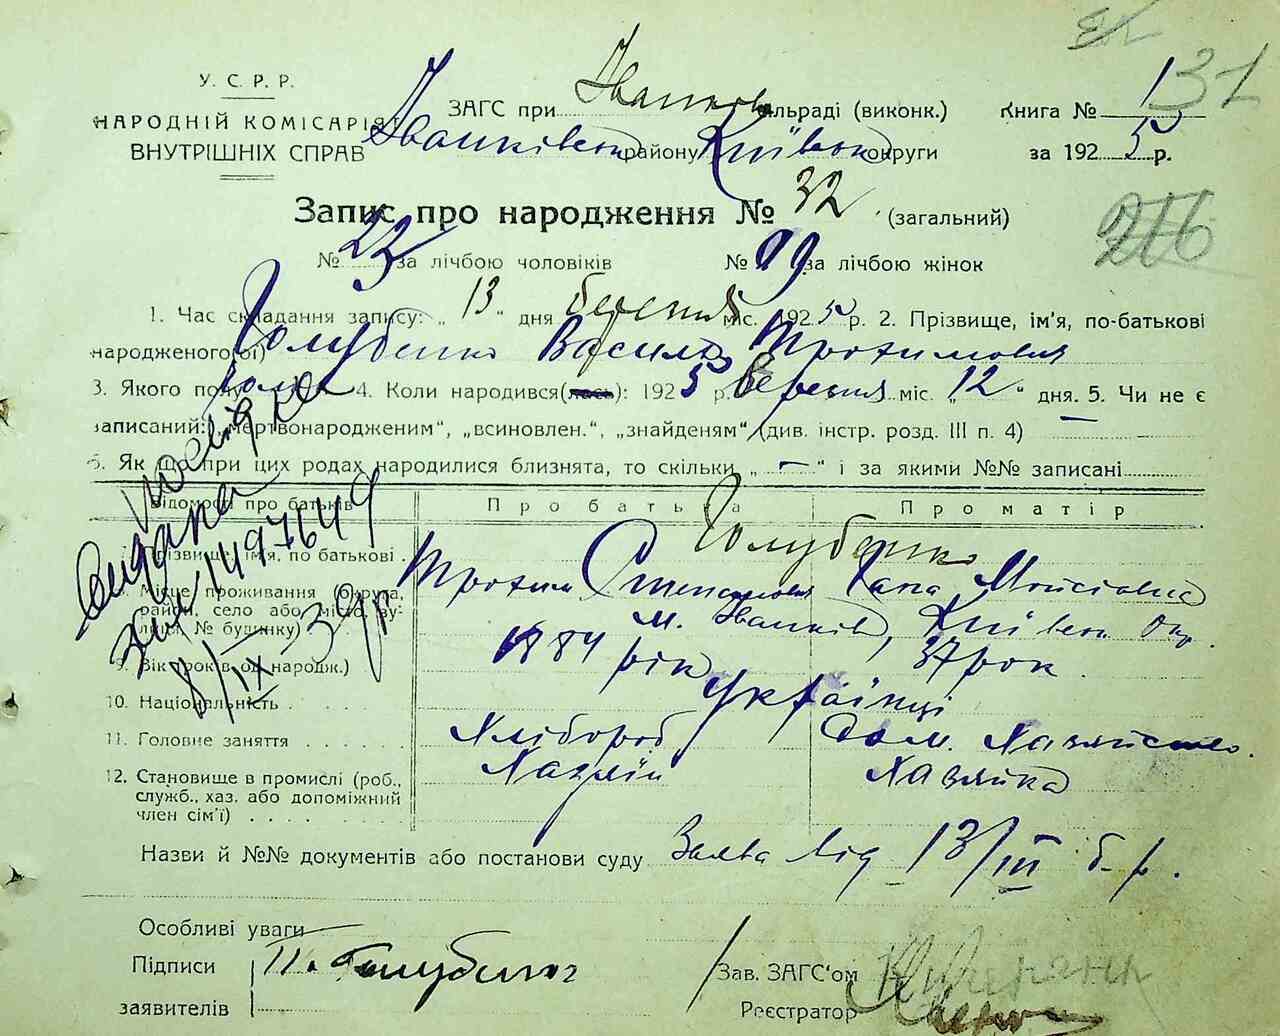 У. С. Р. Р.
НАРОДНІЙ КОМІСАРІЯТ
ВНУТРІШНІХ СПРАВ
ЗАГС при Іванків сільраді (виконк.)
Іванківськ району Київськ округи
Книга № 1
за 1925 р.
131
Запис про народження № 32 (загальний)
№ 23 за лічбою чоловіків № 09 за лічбою жінок
276
1. Час складання запису: „ 13 “ дня березня міс. 1925 р. 2. Прізвище, ім’я, по-батькові
народженого(ої) Голубенко Василь Трохимович
3. Якого полу 4. Коли народився(лась): 1925 р. березня міс. „ 12 “ дня. 5. Чи не є
записаний: „мертвонародженим“, „всиновлен.“, „знайденям“ (див. інстр. розд. III п. 4) —
6. Як що при цих родах народилися близнята, то скільки „ — “ і за якими №№ записані
Відомості про батьків Про батька Про матір
Голубенко
7. Прізвище, ім’я, по батькові . Трохим Степанович Гапа Мойсіовна
8. Місце проживання (округа, район, село або місто, вулиця, № будинку) м. Іванків, Київськ Окр.
9. Вік (років од народж.) 1884 рік 37 рок
10. Національність . . . . Українці
11. Головне заняття . . . . . . Хлібороб Дом. Хазяйство.
12. Становище в промислі (роб., Хазяїн Хазяйка
служб., хаз. або допоміжний
член сім’ї) . . . . . .
видана посвідка
за № 1497649
8/IX 39 р
Назви й №№ документів або постанови суду Заява від 13/III б. р.
Особливі уваги
Підписи
заявителів
Голубенко
Зав. ЗАГС’ом
Реєстратор